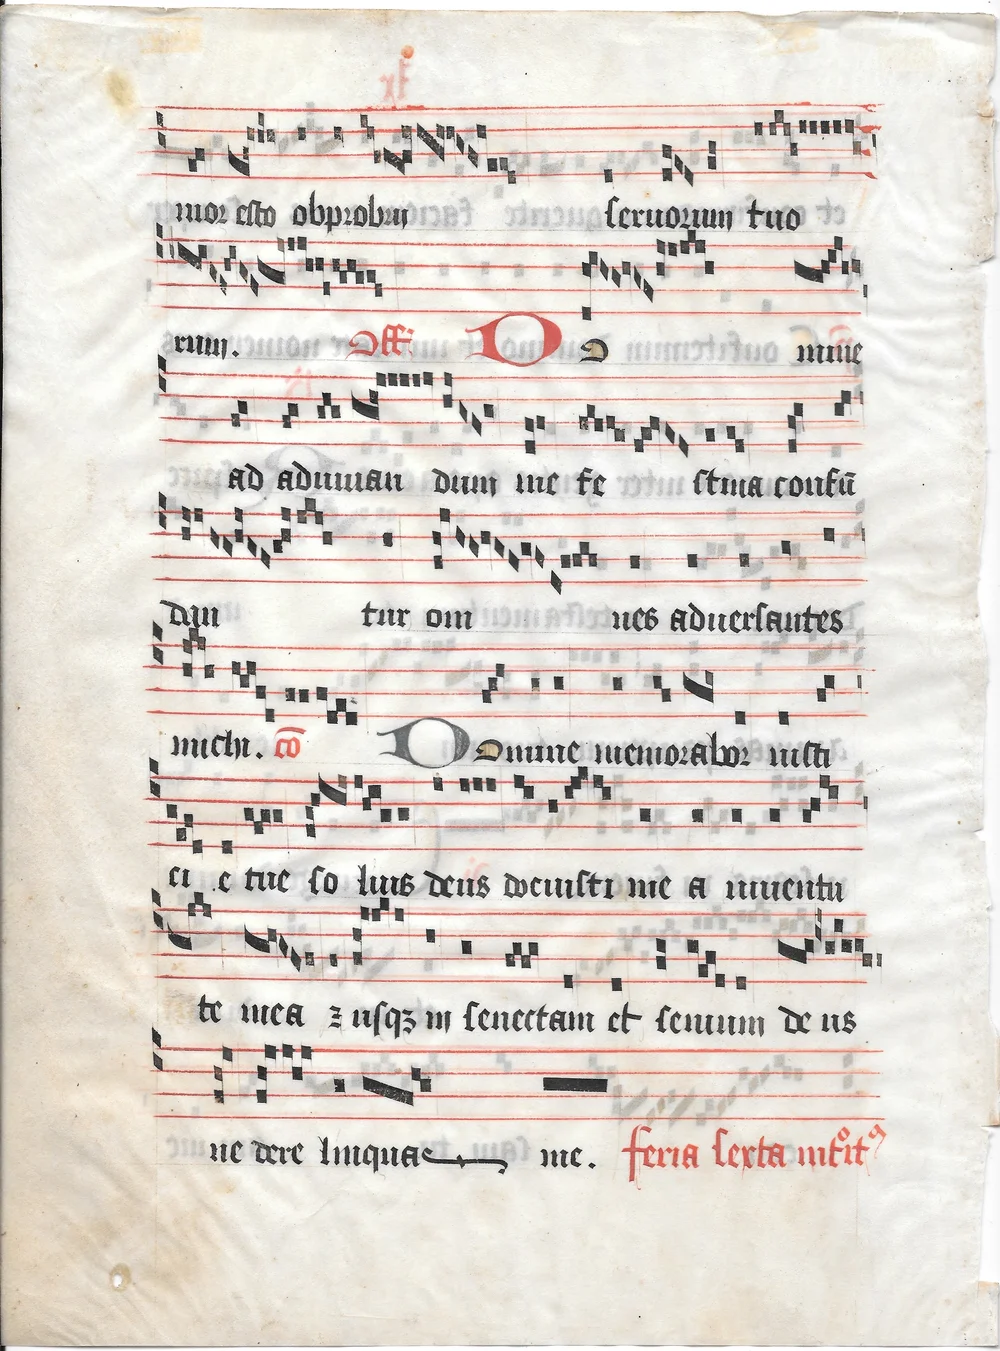 mor esto obprobrij seruorum tuo
rum. Off. D Domine
ad adiuuan dum me fe stina confū
dan tur om nes aduersantes
michi. cō Domine memorabor iusti
ci e tue so lius deus docuisti me a iuuentu
te mea ⁊ usqꝫ in senectam et senium de us
ne dere linqua me. feria sexta